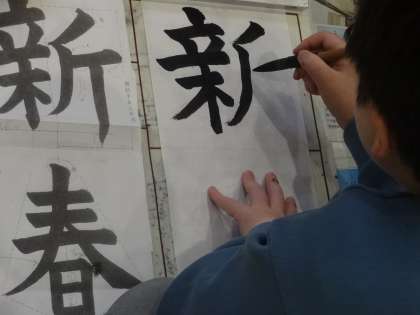 新春
新